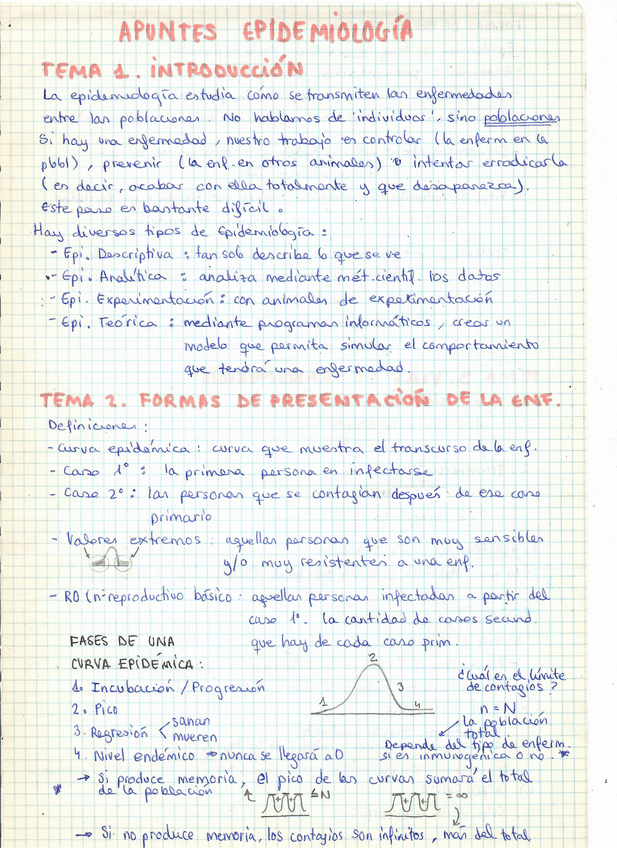 APUNTES EPIDEMIOLOGÍA
TEMA 1. INTRODUCCIÓN
La epidemiología estudia cómo se transmiten las enfermedades
entre las poblaciones. No hablamos de 'individuos', sino poblaciones
Si hay una enfermedad, nuestro trabajo es controlar (la enferm en la
pbbl), prevenir (la enf. en otros animales) o intentar erradicarla
(es decir, acabar con ella totalmente y que desaparezca).
Este paso es bastante difícil.
Hay diversos tipos de Epidemiología:
- Epi. Descriptiva: tan solo describe lo que se ve
- Epi. Analítica: analiza mediante mét. científ. los datos
- Epi. Experimentación: con animales de experimentación
- Epi. Teórica: mediante programas informáticos, crear un
modelo que permita simular el comportamiento
que tendrá una enfermedad.
TEMA 2. FORMAS DE PRESENTACIÓN DE LA ENF.
Definiciones:
- Curva epidémica: curva que muestra el transcurso de la enf.
- Caso 1º: la primera persona en infectarse
- Caso 2º: las personas que se contagian después de ese caso
primario
- Valores extremos: aquellas personas que son muy sensibles
y/o muy resistentes a una enf.
- R0 (nº reproductivo básico: aquellas personas infectadas a partir del
caso 1º. La cantidad de casos secund.
que hay de cada caso prim.
FASES DE UNA
CURVA EPIDÉMICA:
1. Incubación / Progresión
2. Pico
3. Regresión sanan
mueren
4. Nivel endémico → nunca se llegará a 0
1 2 3 4
¿Cuál es el límite
de contagios?
n = N
La población
total
Depende del tipo de enferm.
si es inmunogénica o no. *
* → Si produce memoria, el pico de las curvas sumará el total
de la población
≤N
= ∞
→ Si no produce memoria, los contagios son infinitos, más del total